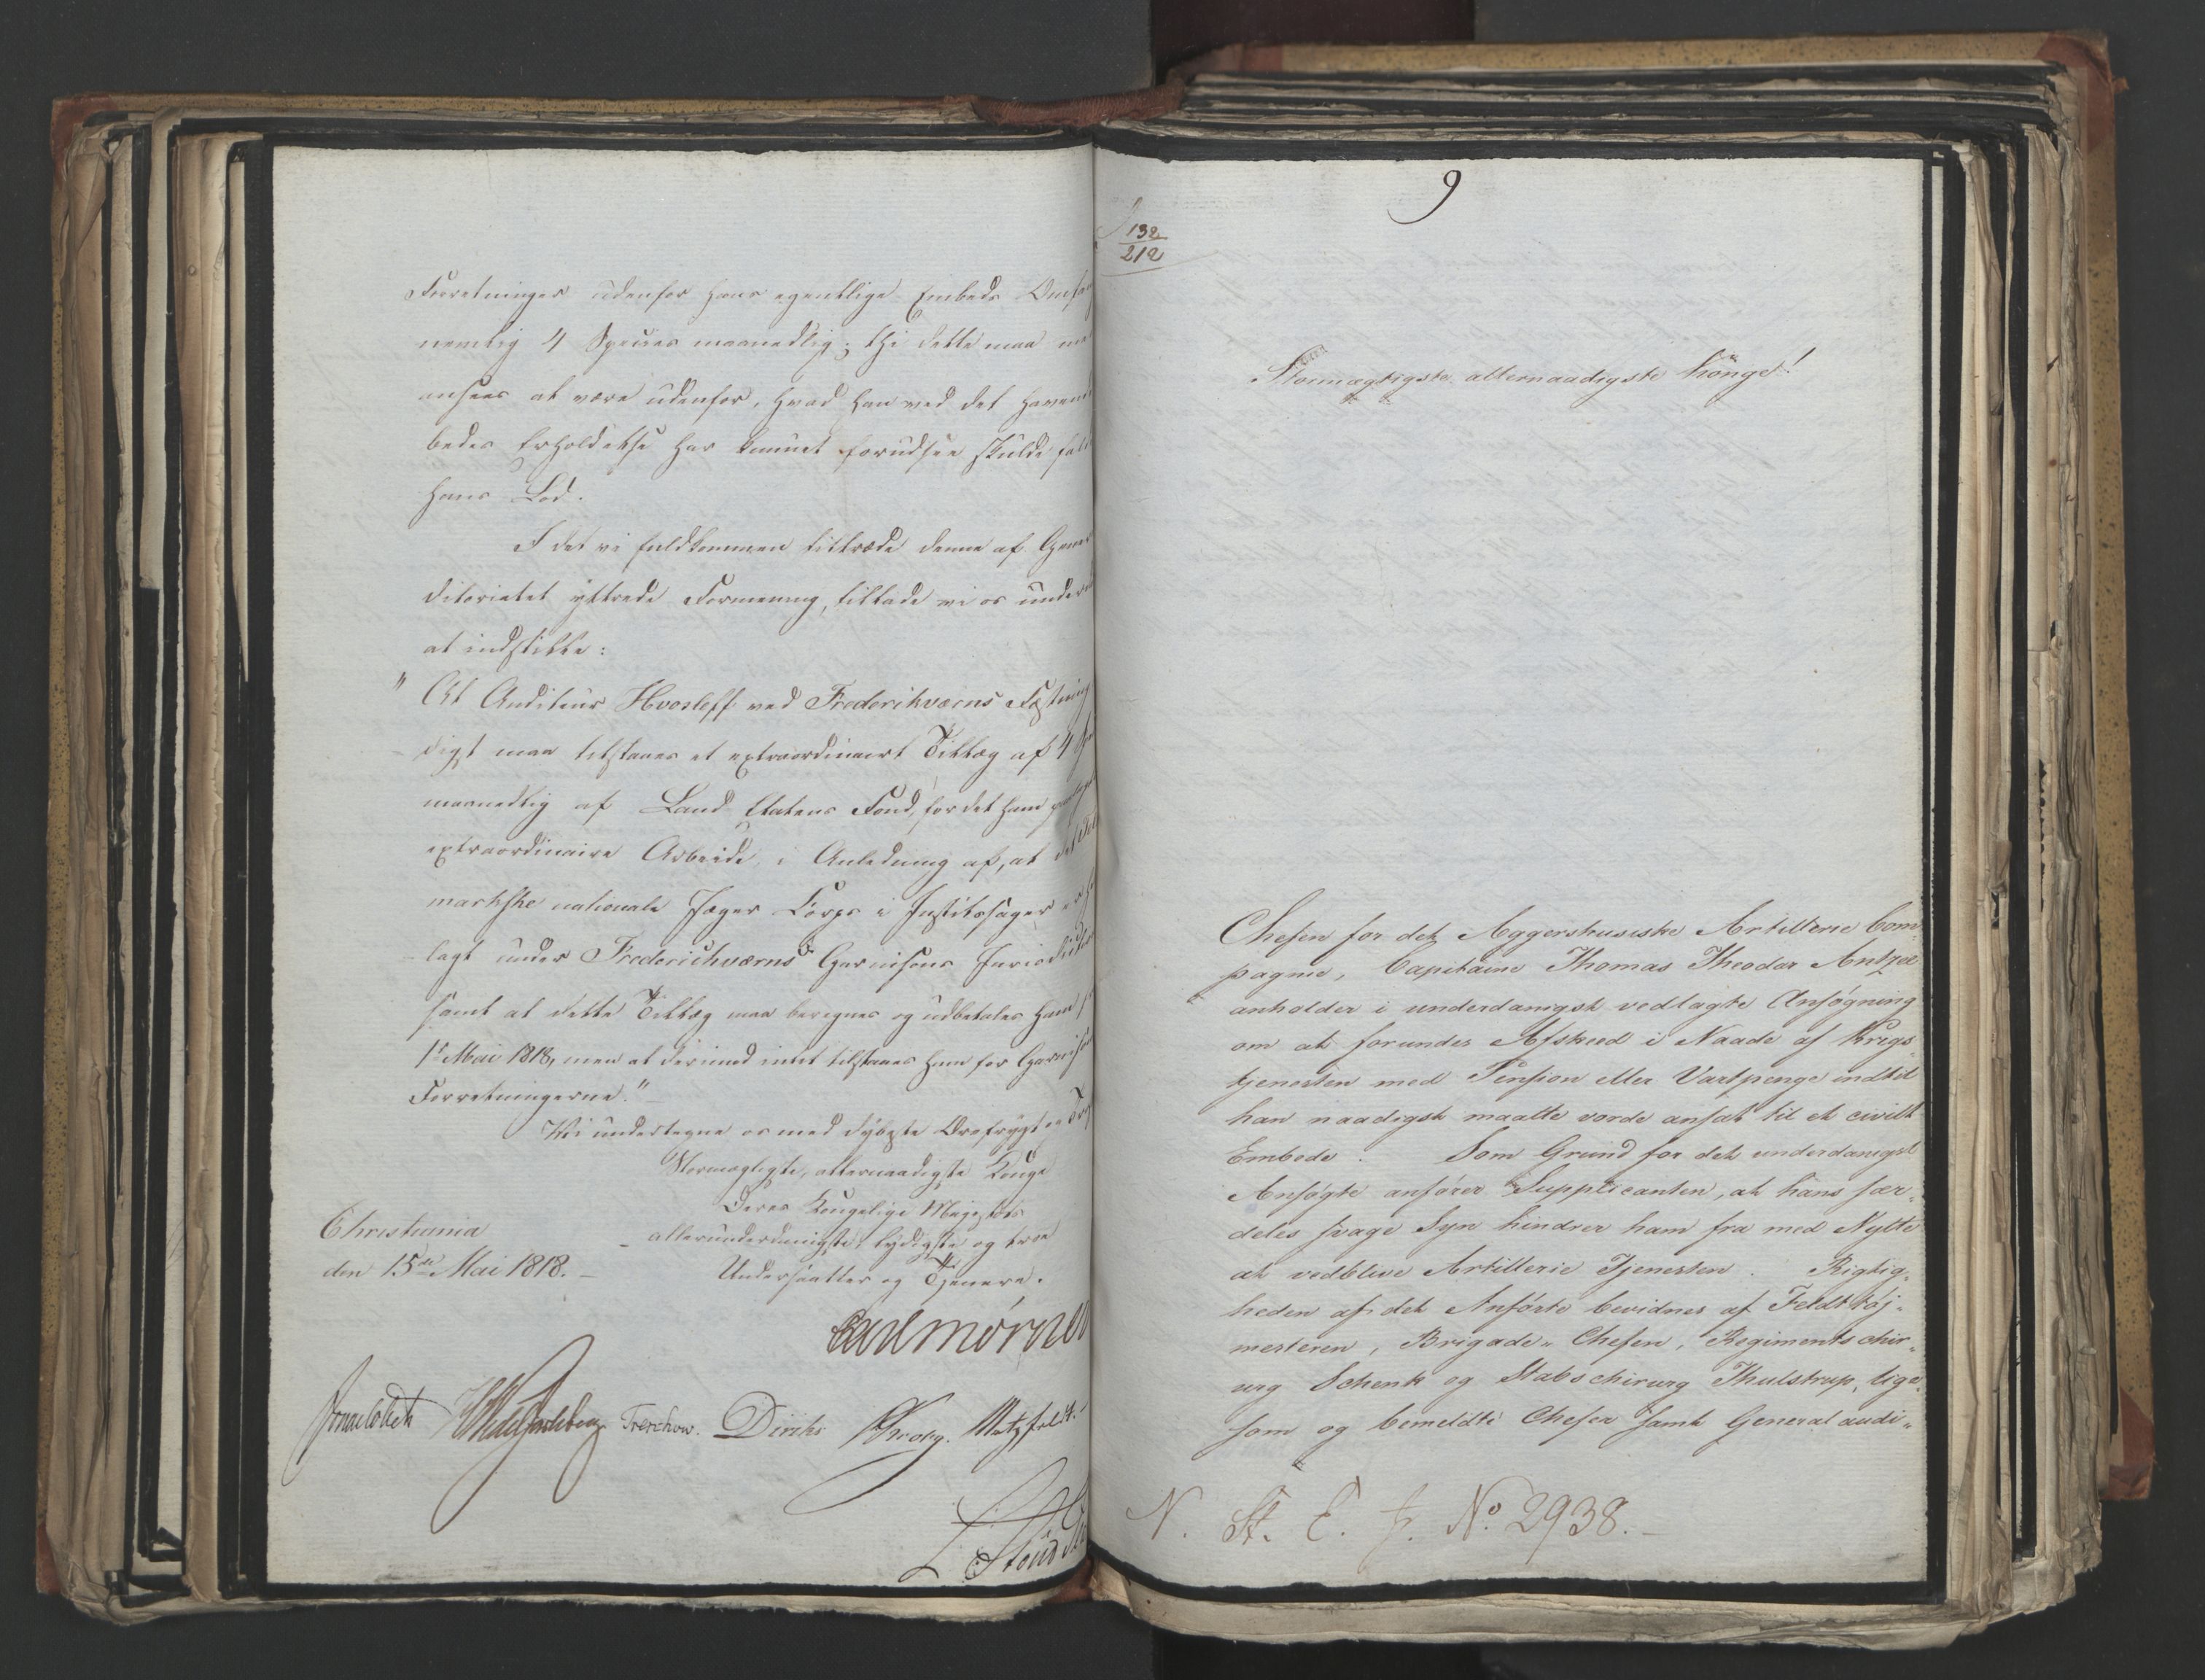 Forretninger udenfor hans egentlige Embeds Omfa
nemlig 4 Species maanedlig; thi dette maa
ansees at være udenfor, hvad han ved det havend
bedes Erholdelse har kunnet forudsee skulde fald
hans Lod.
I det vi fuldkommen tiltræde denne af Gener
ditoriatet yttrede Formening, tillade vi os under
at indstille:
" At Auditeur Hvosleff ved Frederiksværns Fæstning
digst maa tilstaaes et extraordinairt Tillæg af 4
maanedlig af Land Etatens Fond, for det ham
extraordinaire Arbeide, i Anledning af, at det
markske nationale Jæger Corps i Justitssager er
lagt under Frederichsværns Garnisons Jurisdict
samt at dette Tillæg maa beregnes og udbetales ham
1st Mai 1818, men at derimod intet tilstaaes ham for Garnison
Forretningerne." —
Vi undertegne os med dybeste Ærefrygt
Stormægtigste, allernaadigste Konge
Deres Kongelige Majestæts
allerunderdanigste, lydigste og troe
Undersaatter og Tjenere.
Christiania
den 15de Mai 1818. —
Carl Mörner
Treschow. Diriks Krohg. Motzfeldt.
9
132
212
Stormægtigste allernaadigste Konge!
Chefen for det Aggershusiske Artillerie Com
pagnie, Capitaine Thomas Theodor Antzée
anholder i underdanigst vedlagte Ansøgning
om at forundes Afskeed i Naade af Krigs
tjenesten med Pension eller Vartpenge indtil
han naadigst maatte vorde ansat til et civilt
Embede. Som Grund for det underdanigst
Ansøgte anfører Supplicanten, at hans sær-
deles svage Syn hindrer ham fra med Nytte
at vedblive Artillerie Tjenesten. Rigtig-
heden af det Anførte bevidnes af Feldttøj-
mesteren, Brigade-Chefen, Regimentschir-
urg Schenk og Stabschirurg Thulstrup, lige-
som og bemeldte Chefer samt Generalaudi-
N. St. E. No. 2938. —